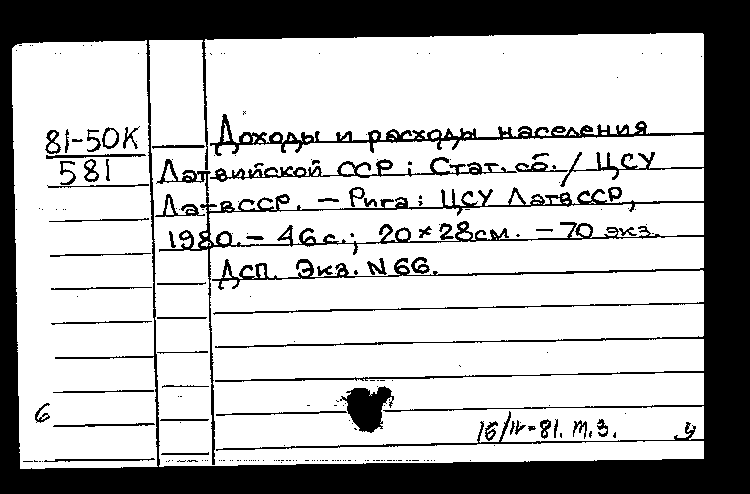 81-50К
581
Доходы и расходы населения
Латвийской ССР : Стат. сб. / ЦСУ
ЛатвССР. – Рига : ЦСУ ЛатвССР,
1980. – 46 с.; 20×28см. – 70 экз.
Дсп. Экз. N 66.
6
16/IV-81. т.з.
у